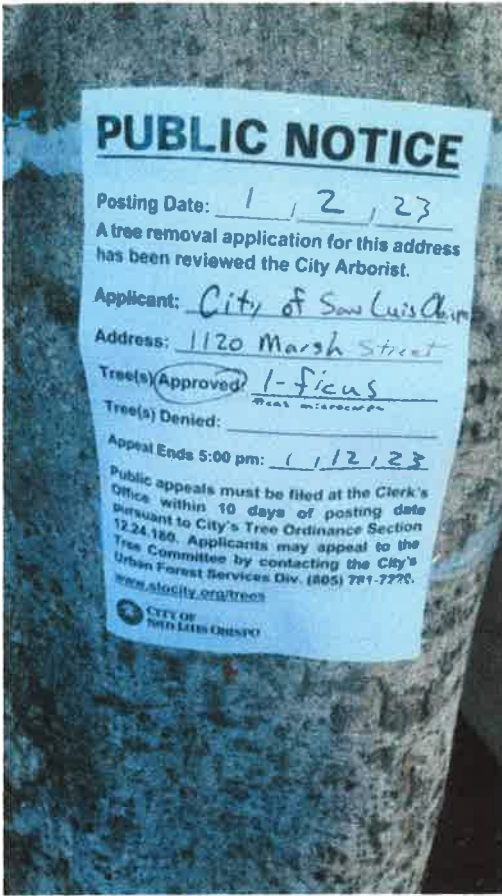 PUBLIC NOTICE
Posting Date: 1 , 2 , 23
A tree removal application for this address
has been reviewed the City Arborist.
Applicant: City of San Luis Obispo
Address: 1120 Marsh Street
Tree(s) Approved: 1-ficus
ficus microcarpa
Tree(s) Denied:
Appeal Ends 5:00 pm: 1 , 12 , 23
Public appeals must be filed at the Clerk's
Office within 10 days of posting date
pursuant to City's Tree Ordinance Section
12.24.180. Applicants may appeal to the
Tree Committee by contacting the City's
Urban Forest Services Div. (805) 781-7220.
www.slocity.org/trees
CITY OF
SAN LUIS OBISPO